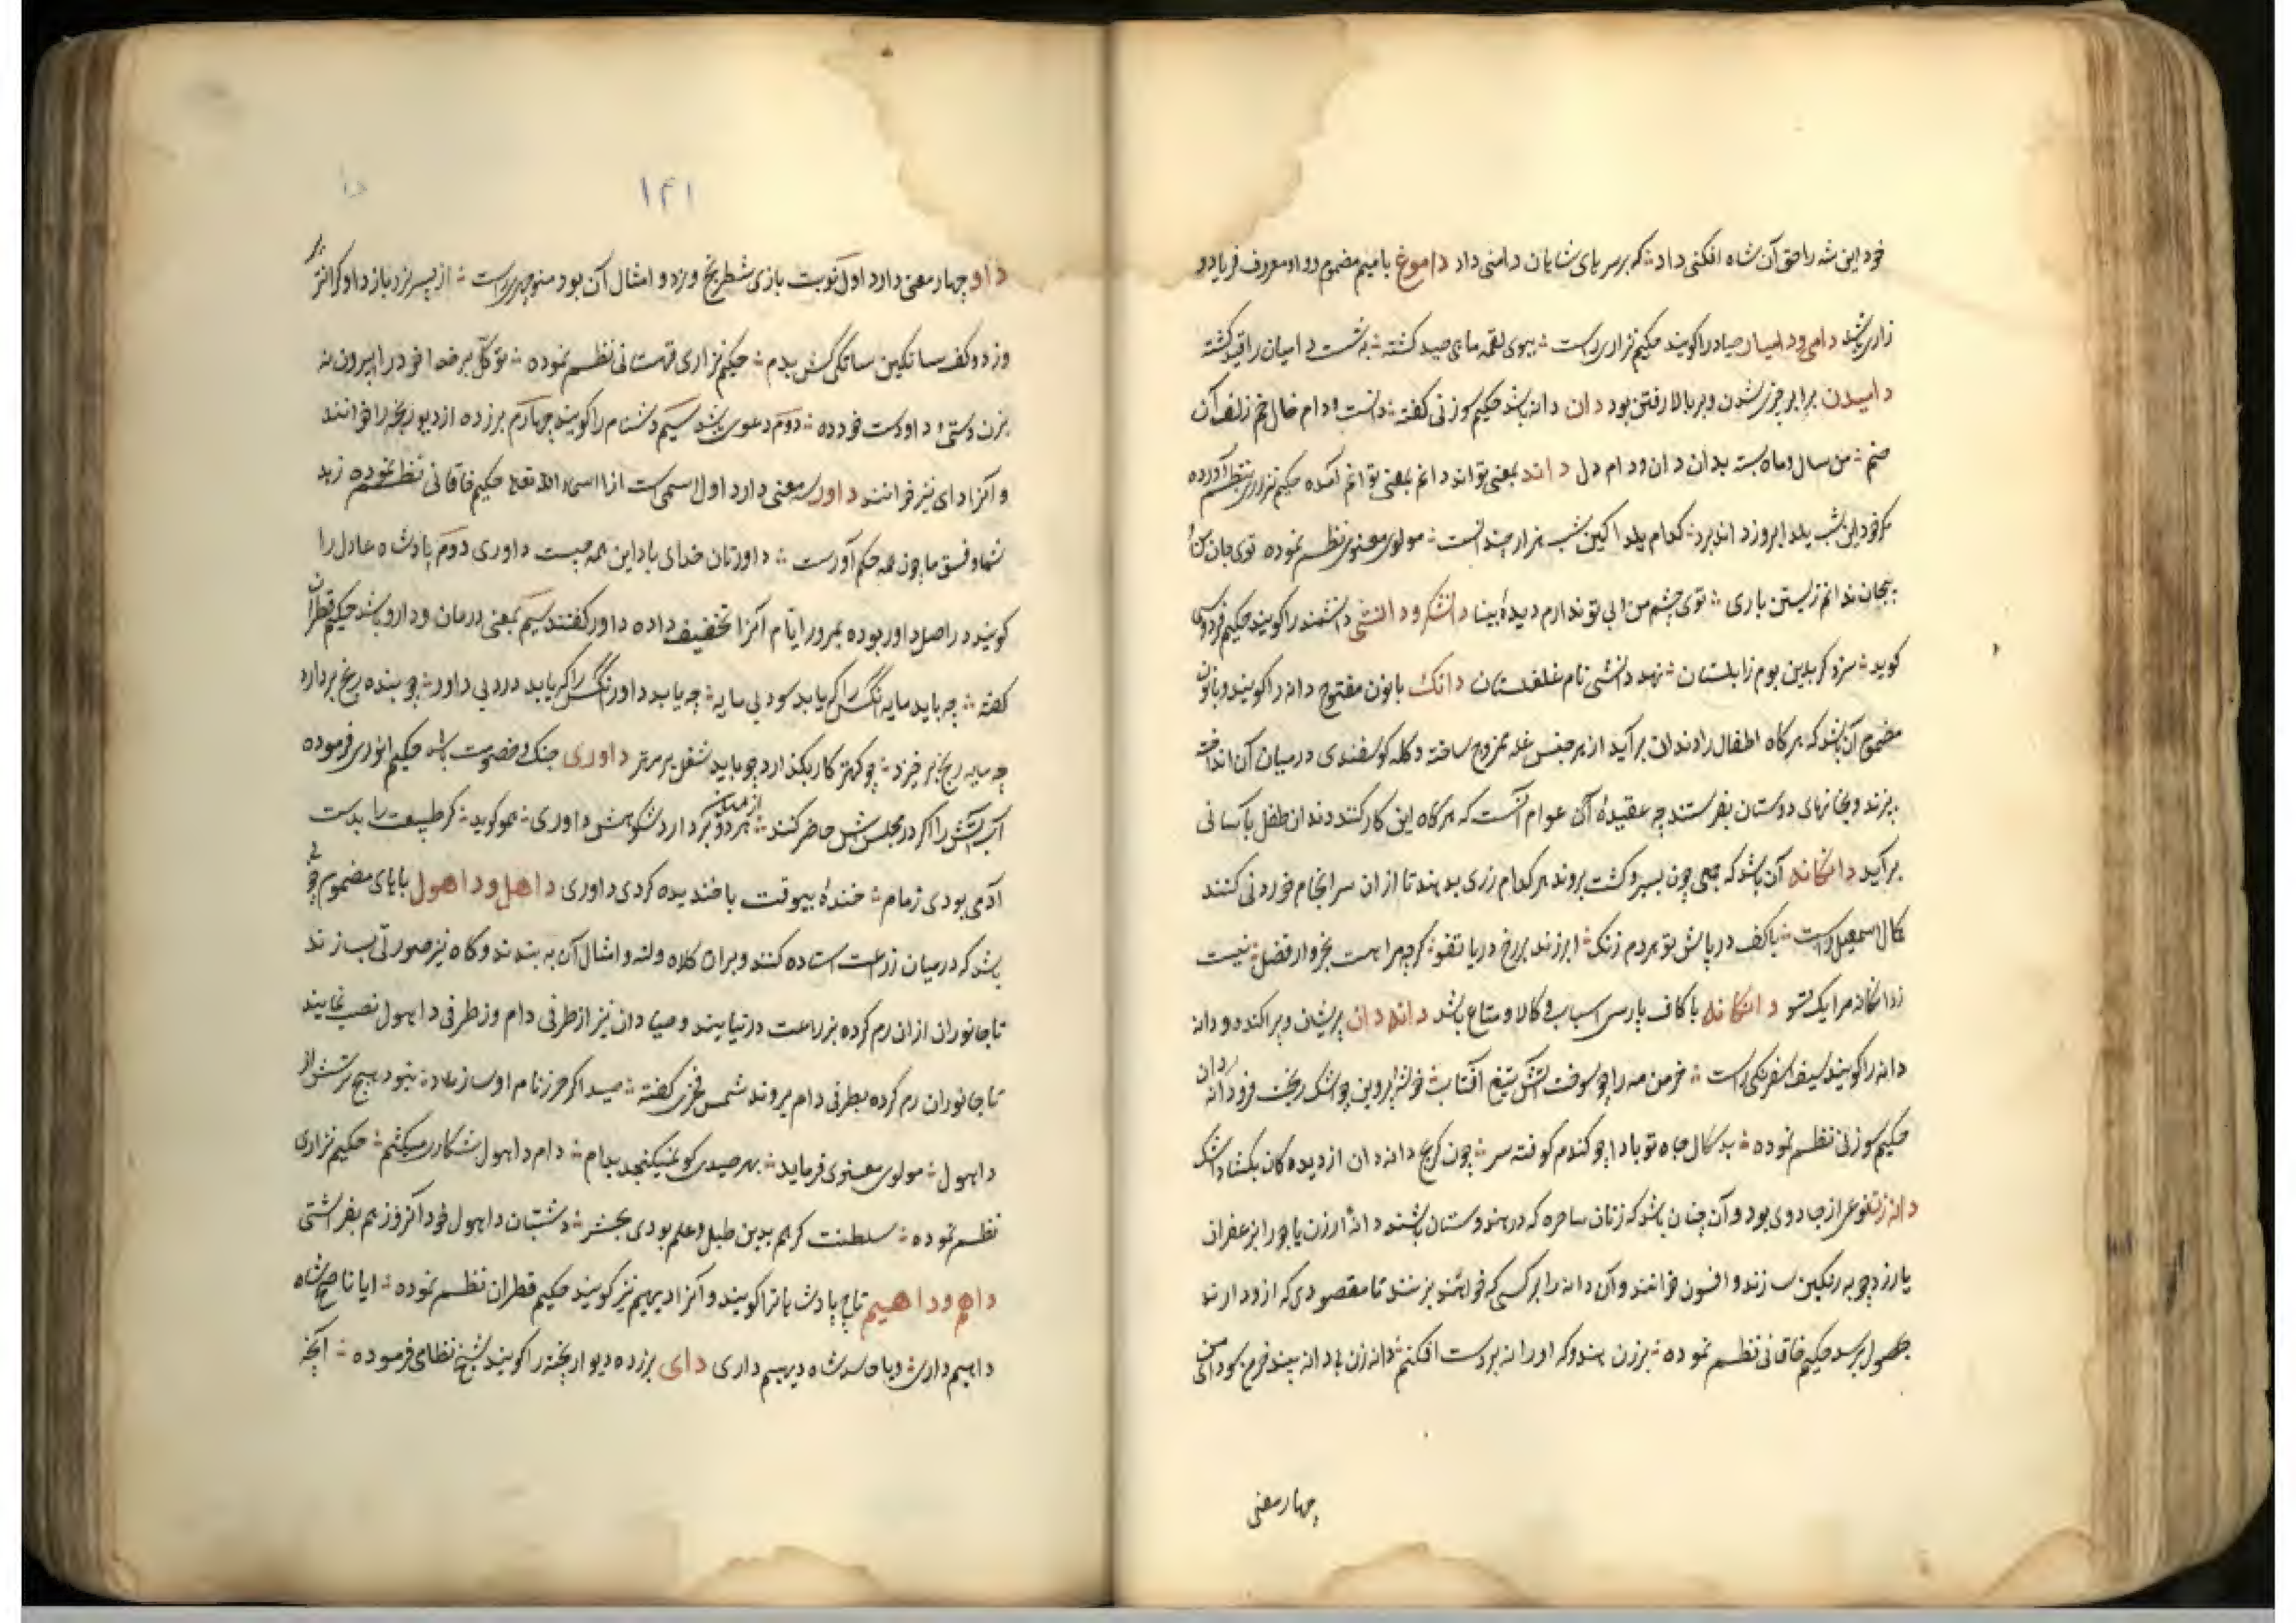 خود این شه را حق آن شاه افکنی داد که بر سر پای شایان دامنی داد داموغ با میم مضموم و واو معروف فریاد و
زاری باشد دامی و دامیار صیاد را گویند حکیم نزاری راست ببوی لقمه ماهی صید کشته به شست دامیان را قید کشته
دامیدن برابر چیزی شدن و بر بالا رفتن بود دان دانه باشد حکیم سوزنی گفته دانست و دام خال خم زلف آن
صنم من سال و ماه بسته بدان دان و دام دل داند بمعنی تواند دانم بمعنی توانم آمده حکیم نزاری بنظم آورده
مگر خود این شب یلدا بروز داند برد کدام یلدا کین شب هزار چندانست مولوی معنوی نظم نموده توی جان من و
بیجان ندانم زیستن باری توی چشم من و بی تو ندارم دیدهٔ بینا دانشگر و دانشی دانشمند را گویند حکیم فردوسی
گوید سزد گر بدین بوم زابلستان نهد دانشی نام غلغلستان دانک با نون مفتوح دانه را گویند و با نون
مضموم آن باشد که هرگاه اطفال را دندان برآید از هر جنس غله ممزوج ساخته و کله گوسفندی در میان آن انداخته
بپزند و بخانهای دوستان بفرستند چه عقیدهٔ آن عوام آنست که هرگاه این کار کنند دندان طفل بآسانی
برآید دانگانه آن باشد که جمعی چون بسیر و گشت بروند هر کدام زری بدهند تا از آن سرانجام خوردنی کنند
کمال اسمعیل راست با کف درپاش تو هر دم زنگ ابر زند بر رخ دریا تفو گرچه مرا هست بخروار فضل نیست
زدانگانه مرا یک تسو دانگانه با کاف پارسی اسباب و کالا و متاع باشد دانه دان پریشان و پراکنده و دانه
دانه را گویند سیف اسفرنگی راست خرمن مه را چو سوخت آتش تیغ آفتاب خوشهٔ پروین چو اشک ریخت فرو دانه دان
حکیم سوزنی نظم نموده بدسگال جاه تو بادا چو گندم کوفته سر چون کریج دانه دان از دیدگان بگشاد اشک
دانه زن نوعی از جادوی بود و آن چنان باشد که زنان ساحره که در هندوستان باشند دانهٔ ارزن یا جو را بزعفران
یا زردچوبه رنگین سازند و افسون خوانند و آن دانه را بر کسی که خواهند بزنند تا مقصودی که ازو دارند
بحصول پرسد حکیم خاقانی نظم نموده برزن هندو که او را نه بردست افکنم دانه زن بی دانه بیند خرمن سودای من
چهار معنی
۱۴۱
داو چهار معنی دارد اول نوبت بازی شطرنج و نرد و امثال آن بود منوچهری راست از پسر نرد باز داو گرانتر ببر
وز دو کف ساتکین ساتگی کش بدم حکیم نزاری قهستانی نظم نموده توکل بر خدا خود را بیرون نه
بزن دستی و داو دست خود ده دوم دعوی باشد سیم دشنام را گویند چهارم بر زده از دیوار پخته را خوانند
و آنرا دای نیز خوانند داور سه معنی دارد اول اسمی است از اسماء الله تعالی حکیم خاقانی نظم نموده زهد
شما و فسق ما چون همه حکم آورست داورتان خدای باد این همه چیست داوری دوم پادشاه عادل را
گویند در اصل داور بوده بمرور ایام آنرا تخفیف داده داور گفتند سیم بمعنی درمان و دارو باشد حکیم قطران
گفته چه باید مایه آنکس را که یابد سود بی مایه چه یابد داور آنکس را که یابد درد بی داور چو بنده رنج بردارد
چه مایه رنج برخیزد چو کهتر کار بگذارد چو باید شغل بر مهتر داوری جنگ و خصومت باشد حکیم انوری فرموده
آب و آتش را اگر در مجلسش حاضر کنند از میان هر دو بردارد شکوهش داوری هموگوید گر طبیعت را بدست
آدمی بودی زمام خندهٔ بیوقت با خندیده کردی داوری داهل و داهول با های مضموم چیزی
باشد که در میان زراعت استاده کنند و بران کلاه و لته و امثال آن به بندند و گاه نیز صورتی بسازند
تا جانوران از ان رم کرده بزراعت در نیایند و صیادان نیز از طرفی دام و ز طرفی داهول نصب نمایند
تا جانوران رم کرده بطرفی دام بروند شمس فخری گفته صید اگر حرز نام او سازد نبود هیچ ترسش از
داهول مولوی معنوی فرماید بهر صیدی کو نمیگنجد بدام دام داهول شکاری میکشم حکیم نزاری
نظم نموده سلطنت گر هم بدین طبل و علم بودی بحشر دشتبان داهول خود آنروز هم بفراشتی
داهم و داهیم تاج پادشاهانرا گویند و آنرا دیهیم نیز گویند حکیم قطران نظم نموده ایا ناصح شاه
داهیم داری و یا حاسد شاه دیهیم داری دای بر زده دیوار پخته را گویند شیخ نظامی فرموده آنچه